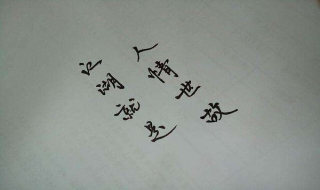 江湖就是
人情世故